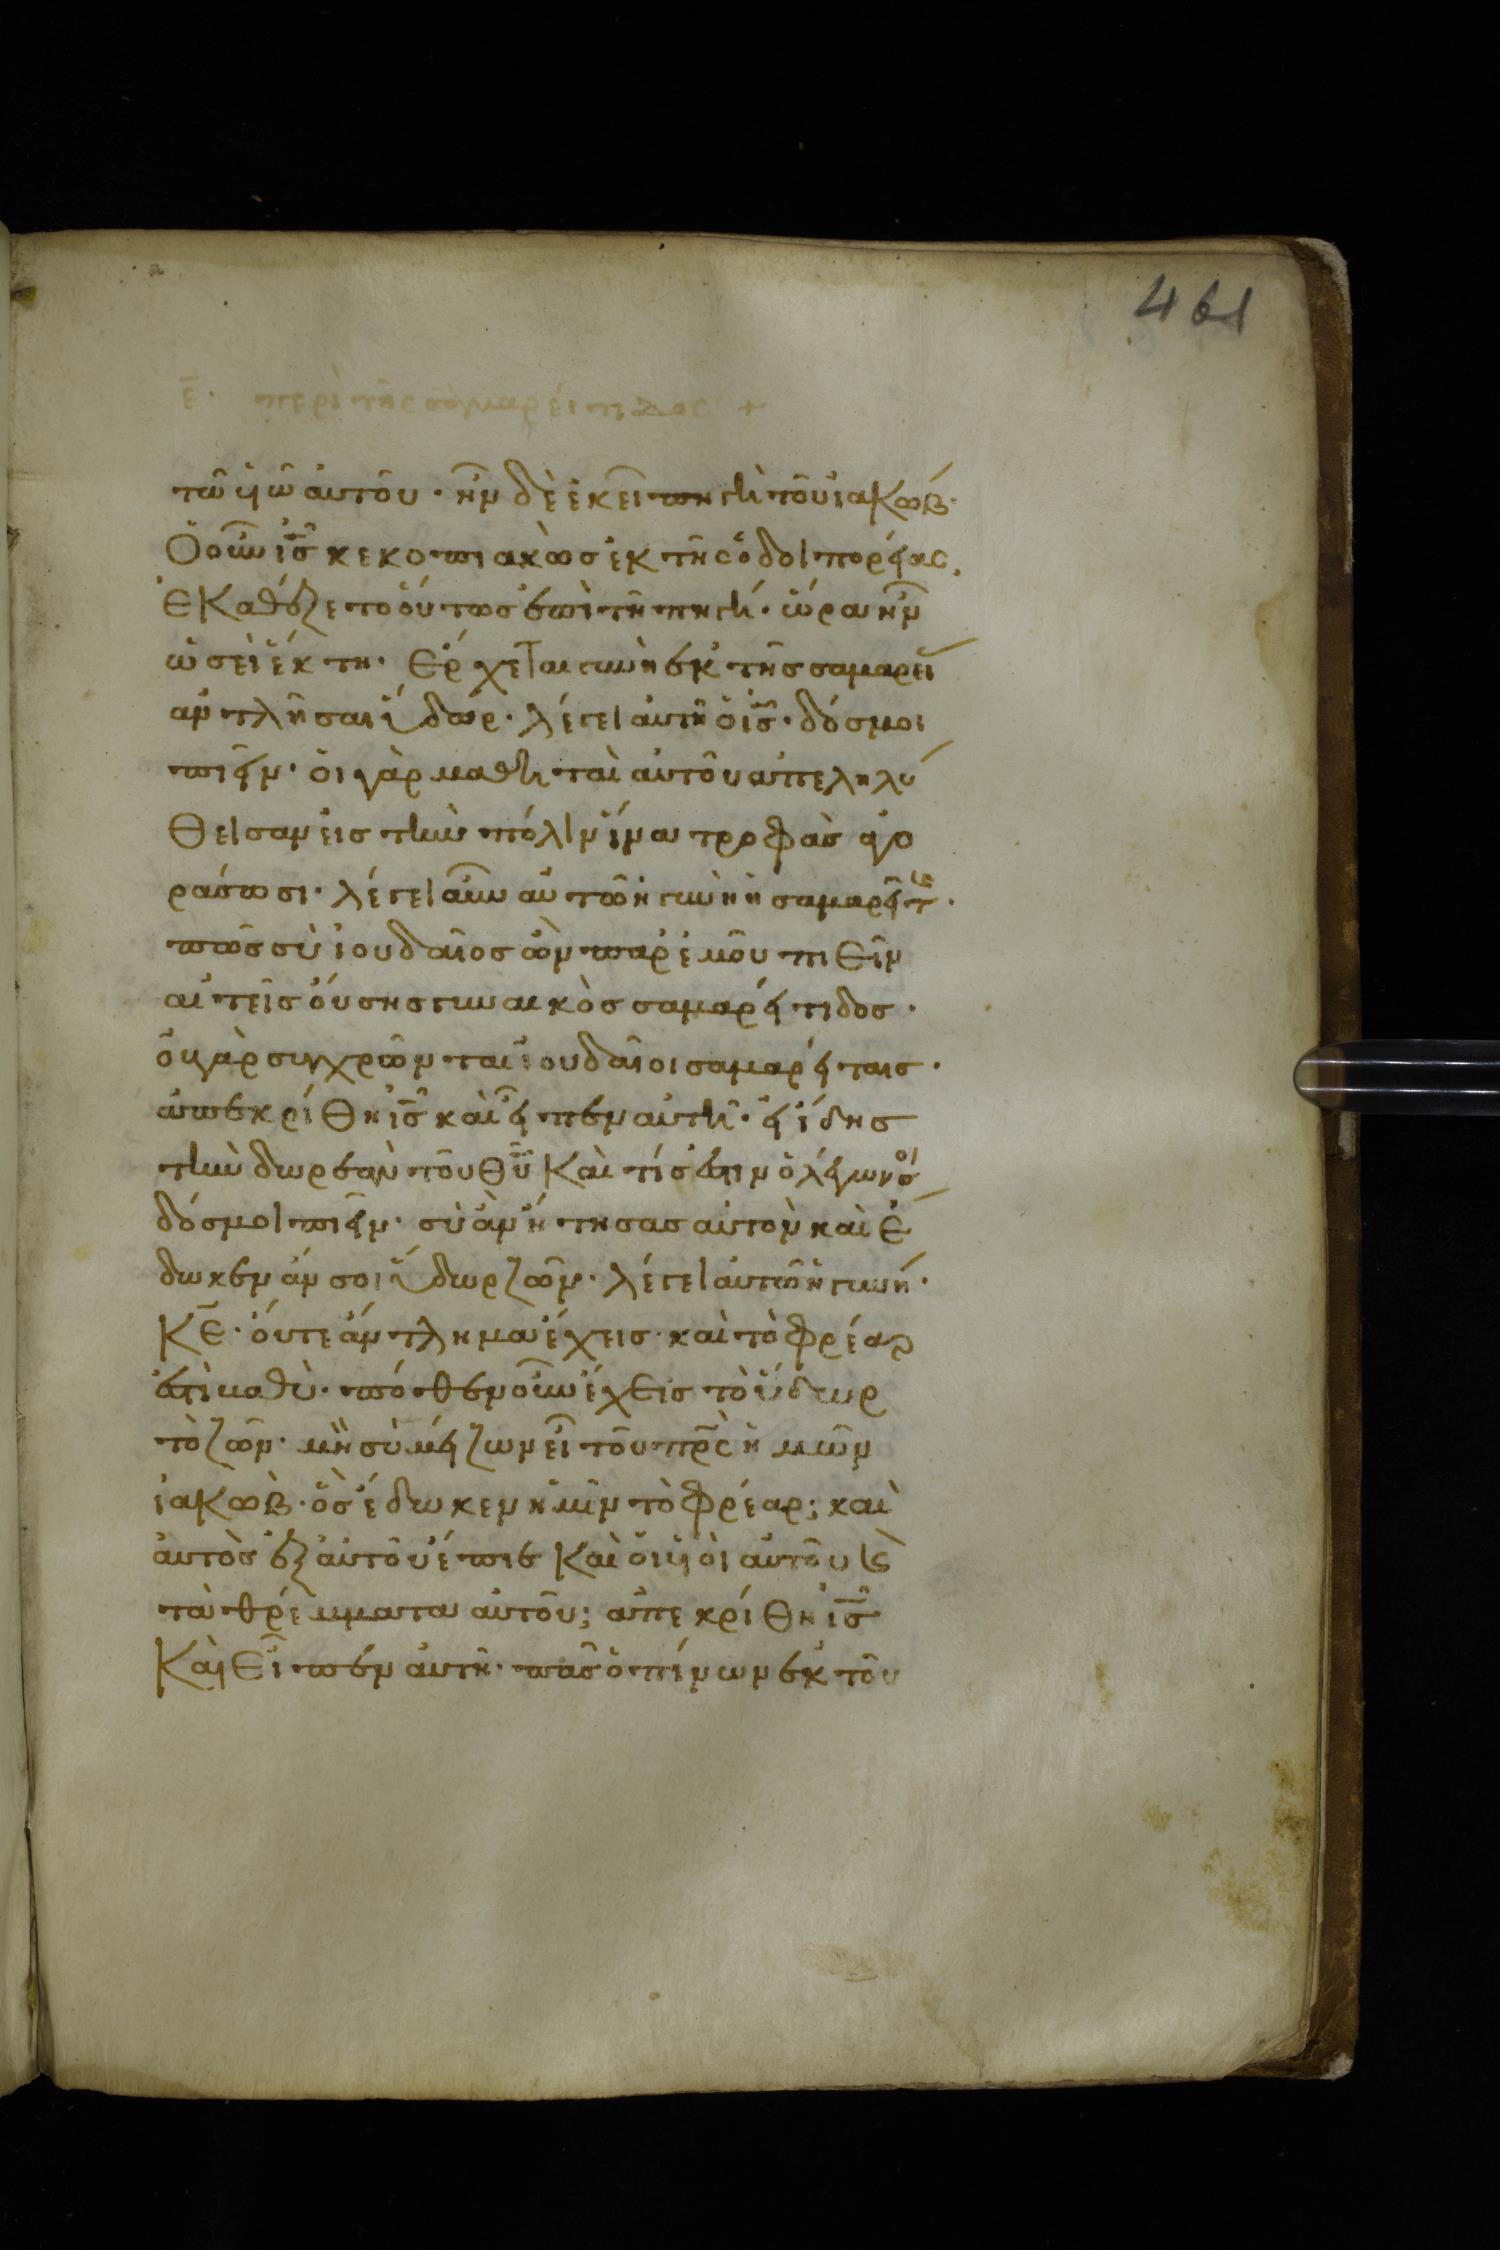 461
ε̄. περὶ τῆς σαμαρείτιδος +
τῶ υἱῶ αὐτοῦ· ἦν δὲ ἐκεῖ πηγὴ τοῦ ἰακώβ·
Ὁ οὖν ἰς̅ κεκοπιακὼς ἐκ τῆς ὁδοιπορείας,
ἐκαθέζετο οὕτως ἐπὶ τῆ πηγή· ὥρα ἦν
ὡσεὶ ἕκτη· Ἔρχεται γυνὴ ἐκ τῆς σαμαρεί
ἀντλῆσαι ὕδωρ· λέγει αὐτῆ ὁ ἰς̅· δός μοι
πιεῖν· οἱ γὰρ μαθηταὶ αὐτοῦ ἀπεληλύ
θεισαν εἰς τὴν πόλιν ἵνα τροφὰς ἀγο
ράσωσι· λέγει οὖν αὐτῶ ἡ γυνὴ ἡ σαμαρεῖτις·
πῶς σὺ ἰουδαῖος ὢν παρ' ἐμοῦ πιεῖν
αἰτεῖς οὔσης γυναικὸς σαμαρείτιδος·
οὐ γὰρ συγχρῶνται ἰουδαῖοι σαμαρείταις·
ἀπεκρίθη ἰς̅ καὶ εἶπεν αὐτῆ· εἰ ἤδης
τὴν δωρεὰν τοῦ θυ̅ καὶ τίς ἐστιν ὁ λέγων σοί
δός μοι πιεῖν· σὺ ἂν ἤτησας αὐτὸν καὶ ἔ
δωκεν ἄν σοι ὕδωρ ζῶν· λέγει αὐτῶ ἡ γυνή·
Κε̅· οὔτε ἄντλημα ἔχεις· καὶ τὸ φρέαρ
ἐστὶ βαθύ· πόθεν οὖν ἔχεις τὸ ὕδωρ
τὸ ζῶν· μὴ σὺ μείζων εἶ τοῦ πρ̅ς ἡμῶν
ἰακώβ· ὃς ἔδωκεν ἡμῖν τὸ φρέαρ; καὶ
αὐτὸς ἐξ αὐτοῦ ἔπιε καὶ οἱ υἱοὶ αὐτοῦ ϗ
τὰ θρέμματα αὐτοῦ; ἀπεκρίθη ἰς̅
καὶ εἶπεν αὐτῆ· πᾶς ὁ πίνων ἐκ τοῦ